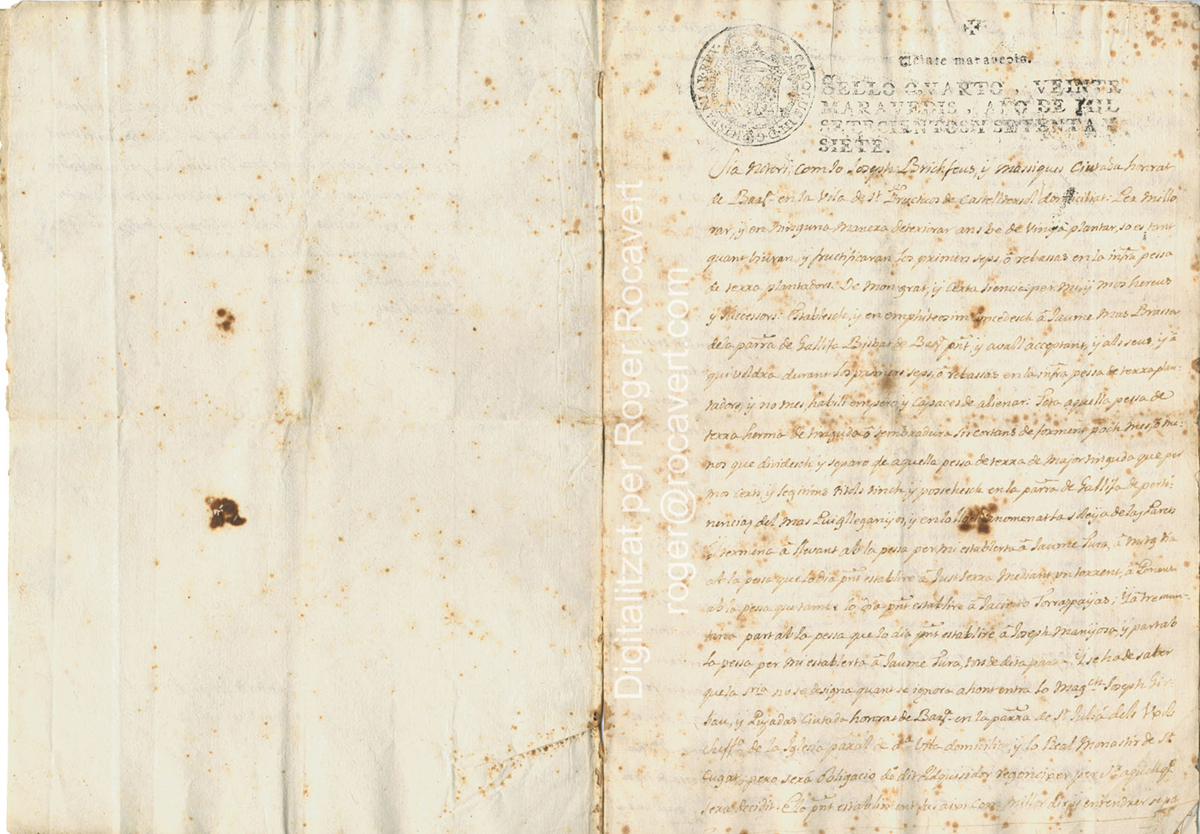 Veinte maravedis.
SELLO QVARTO, VEINTE
MARAVEDIS, AÑO DE MIL
SETECIENTOS Y SETENTA Y
SIETE.
CAROLUS III D G HISPANIAR REX
Sia Notori: Com Jo Joseph Brichfeus, y Massigues Ciutadá honrat
de Barª en la Vila de Sᵗ Fructuos de Castelltersol domiciliat: Per millo
rar, y en ninguna manera deteriorar ans be de Vinya plantar, so es tant
quant viuran y fructificaran los primers seps, ô rebassas en la infra pessa
de terra plantadors: De mon grat, y certa siencia per mi, y mos hereus
y successors: Establesch, y en emphiteosim concedesch â Jaume Mas Brassa
de la parrª de Gallifa Bisbat de Barª pñt y avall acceptant, y als seus, y â
qui voldra durant los primers seps, ô rebassas en la infra pessa de terra plan
tadors, y no mes, habils empero, y capaces de alienar: Tota aquella pessa de
terra herma de tinguda ô sembradura sis cortans de forment poch mes, ô me
nos que dividesch y separo de aquella pessa de terra de major tinguda que per
mos certs y legitims titols tinch, y possehesch en la parrª de Gallifa de perti
nencias del Mas Puiglleganyos, y en lo lloch anomenat la Soleya de las Parets
Y termena â llevant ab la pessa per mi establerta â Jaume Tura, â mitg dia
ab la pessa que lo dia pñt establiré â Just Serra mediant un torrent, â Ponent
ab la pessa que també lo dia pñt establire â Jacinto Torraspayas; Y â tremun
tana part ab la pessa que lo dia pñt establiré â Joseph Manyosa, y part ab
la pessa per mi establerta â Jaume Tura, tots de dita parrª. Y se ha de saber
que la Sria no se designa quant se ignora ahont entra lo Magᶜʰ Joseph
y Pujadas Ciutadá honrat de Barª en la parrª de Sᵗ Juliá dels
de la Iglesia domiciliat, y lo Real Monastir de Sᵗ
Cugat, pero sera Obligacio de dit Adquisidor regoneixer per Sʳ aquell qᵉ
sera decidit: Est lo pñt establiment fas aixi com millor dir, y entendrer se pa
Digitalitzat per Roger Rocavert
roger@rocavert.com